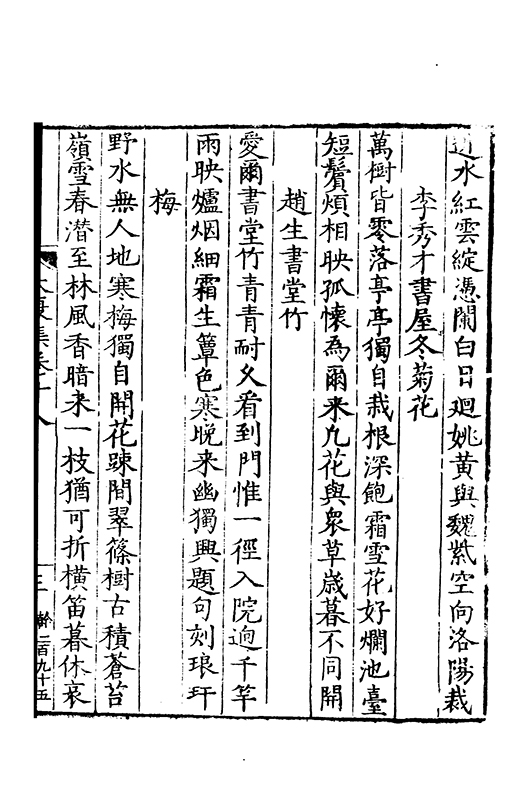 水紅雲綻憑闌白日廻姚黃與魏紫空向洛陽栽
李秀才書屋冬菊花
萬樹皆零落亭亭獨自栽根深飽霜雪花好爛池臺
短鬢煩相映孤懷為爾来凢花與衆草歳暮不同開
趙生書堂竹
愛爾書堂竹青青耐久看到門惟一徑入院逈千竿
雨映爐烟細霜生簟色寒晚来幽獨興題句刻琅玕
梅
野水無人地寒梅獨自開花踈間翠篠樹古積蒼苔
嶺雪春潛至林風香暗来一枝猶可折横笛暮休哀
集卷十八
三
二百九十五